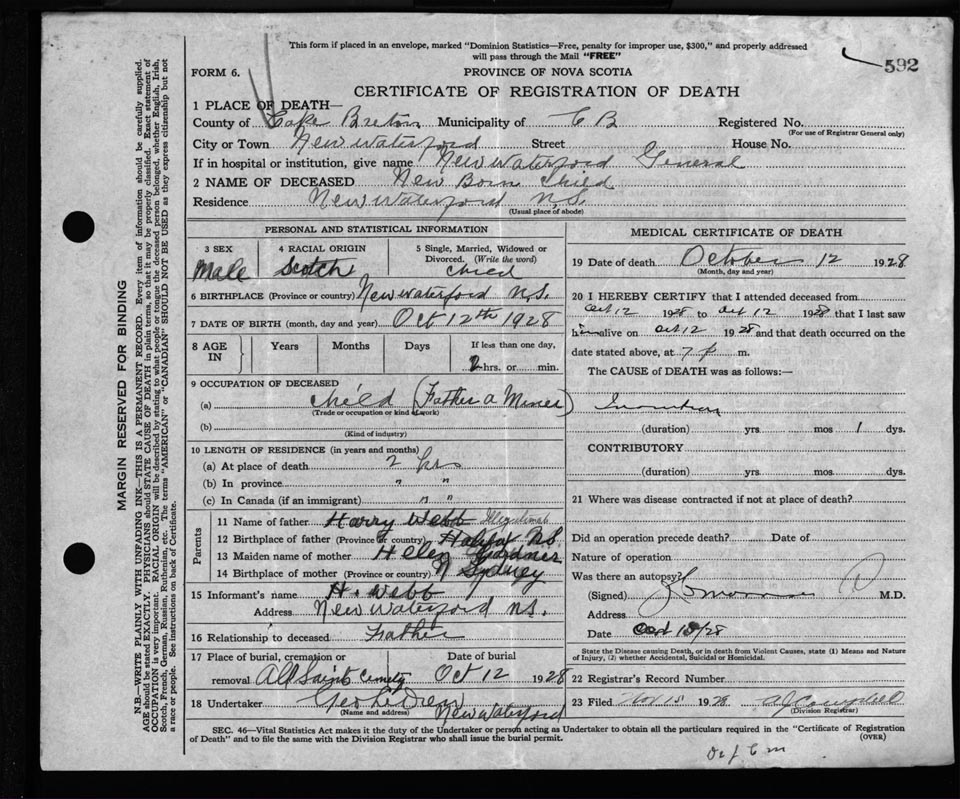 This form if placed in an envelope, marked "Dominion Statistics—Free, penalty for improper use, $300," and properly addressed
will pass through the Mail "FREE"
592
FORM 6.
PROVINCE OF NOVA SCOTIA
CERTIFICATE OF REGISTRATION OF DEATH
1 PLACE OF DEATH—
County of Cape Breton Municipality of C B Registered No.
(For use of Registrar General only)
City or Town New Waterford Street House No.
If in hospital or institution, give name New Waterford General
2 NAME OF DECEASED New Born Child
Residence New Waterford N.S.
(Usual place of abode)
PERSONAL AND STATISTICAL INFORMATION
3 SEX 4 RACIAL ORIGIN 5 Single, Married, Widowed or
Divorced. (Write the word)
Male Scotch Child
6 BIRTHPLACE (Province or country) New Waterford N.S.
7 DATE OF BIRTH (month, day and year) Oct 12th 1928
8 AGE IN Years Months Days If less than one day,
2 hrs. or min.
9 OCCUPATION OF DECEASED
(a) Child (Father a Miner)
(Trade or occupation or kind of work)
(b)
(Kind of industry)
10 LENGTH OF RESIDENCE (in years and months)
(a) At place of death 2 hrs
(b) In province " "
(c) In Canada (if an immigrant) " "
Parents
11 Name of father Harry Webb Illegitimate
12 Birthplace of father (Province or country) Halifax N.S.
13 Maiden name of mother Helen Gardner
14 Birthplace of mother (Province or country) N Sydney
15 Informant's name H. Webb
Address New Waterford N.S.
16 Relationship to deceased Father
17 Place of burial, cremation or Date of burial
removal All Saints Cemetry Oct 12 1928
18 Undertaker Geo
(Name and address) New Waterford
MEDICAL CERTIFICATE OF DEATH
19 Date of death October 12 1928
(Month, day and year)
20 I HEREBY CERTIFY that I attended deceased from
Oct 12 1928 to Oct 12 1928 that I last saw
him alive on Oct 12 1928 and that death occurred on the
date stated above, at 7 p m.
The CAUSE of DEATH was as follows:—
(duration) yrs mos 1 dys.
CONTRIBUTORY
(duration) yrs. mos dys.
21 Where was disease contracted if not at place of death?
Did an operation precede death? Date of
Nature of operation
Was there an autopsy?
(Signed) M.D.
Address
Date Oct 15/28
State the Disease causing Death, or in death from Violent Causes, state (1) Means and Nature
of Injury, (2) whether Accidental, Suicidal or Homicidal.
22 Registrar's Record Number
23 Filed Nov 15 1928 Campbell
(Division Registrar)
SEC. 46—Vital Statistics Act makes it the duty of the Undertaker or person acting as Undertaker to obtain all the particulars required in the "Certificate of Registration
of Death" and to file the same with the Division Registrar who shall issue the burial permit.
(OVER)
MARGIN RESERVED FOR BINDING
N.B.—WRITE PLAINLY WITH UNFADING INK—THIS IS A PERMANENT RECORD. Every item of information should be carefully supplied.
AGE should be stated EXACTLY. PHYSICIANS should STATE CAUSE OF DEATH in plain terms, so that it may be properly classified. Exact statement of
OCCUPATION is very important. RACIAL ORIGIN will be described by stating to what people or tongue the deceased person belonged, whether English, Irish,
Scotch, French, German, Russian, Ruthenian, etc. The terms "AMERICAN" or "CANADIAN" SHOULD NOT BE USED as they express citizenship but not
a race or people. See instructions on back of Certificate.